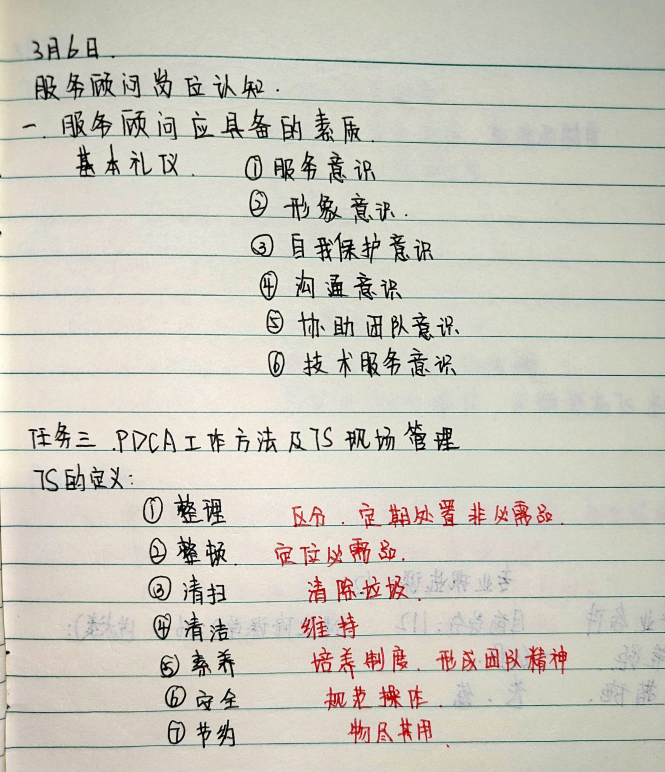 3月6日.
服务顾问岗位认知.
一. 服务顾问应具备的素质.
基本礼仪. ①服务意识
② 形象意识.
③ 自我保护意识
④ 沟通意识
⑤ 协助团队意识
⑥ 技术服务意识
任务三.PDCA工作方法及7S现场管理
7S的定义:
① 整理 区分.定期处置非必需品.
② 整顿. 定位必需品.
③ 清扫 清除垃圾.
④ 清洁 维持
⑤ 素养 培养制度.形成团队精神
⑥ 安全 规范操作.
⑦ 节约 物尽其用.